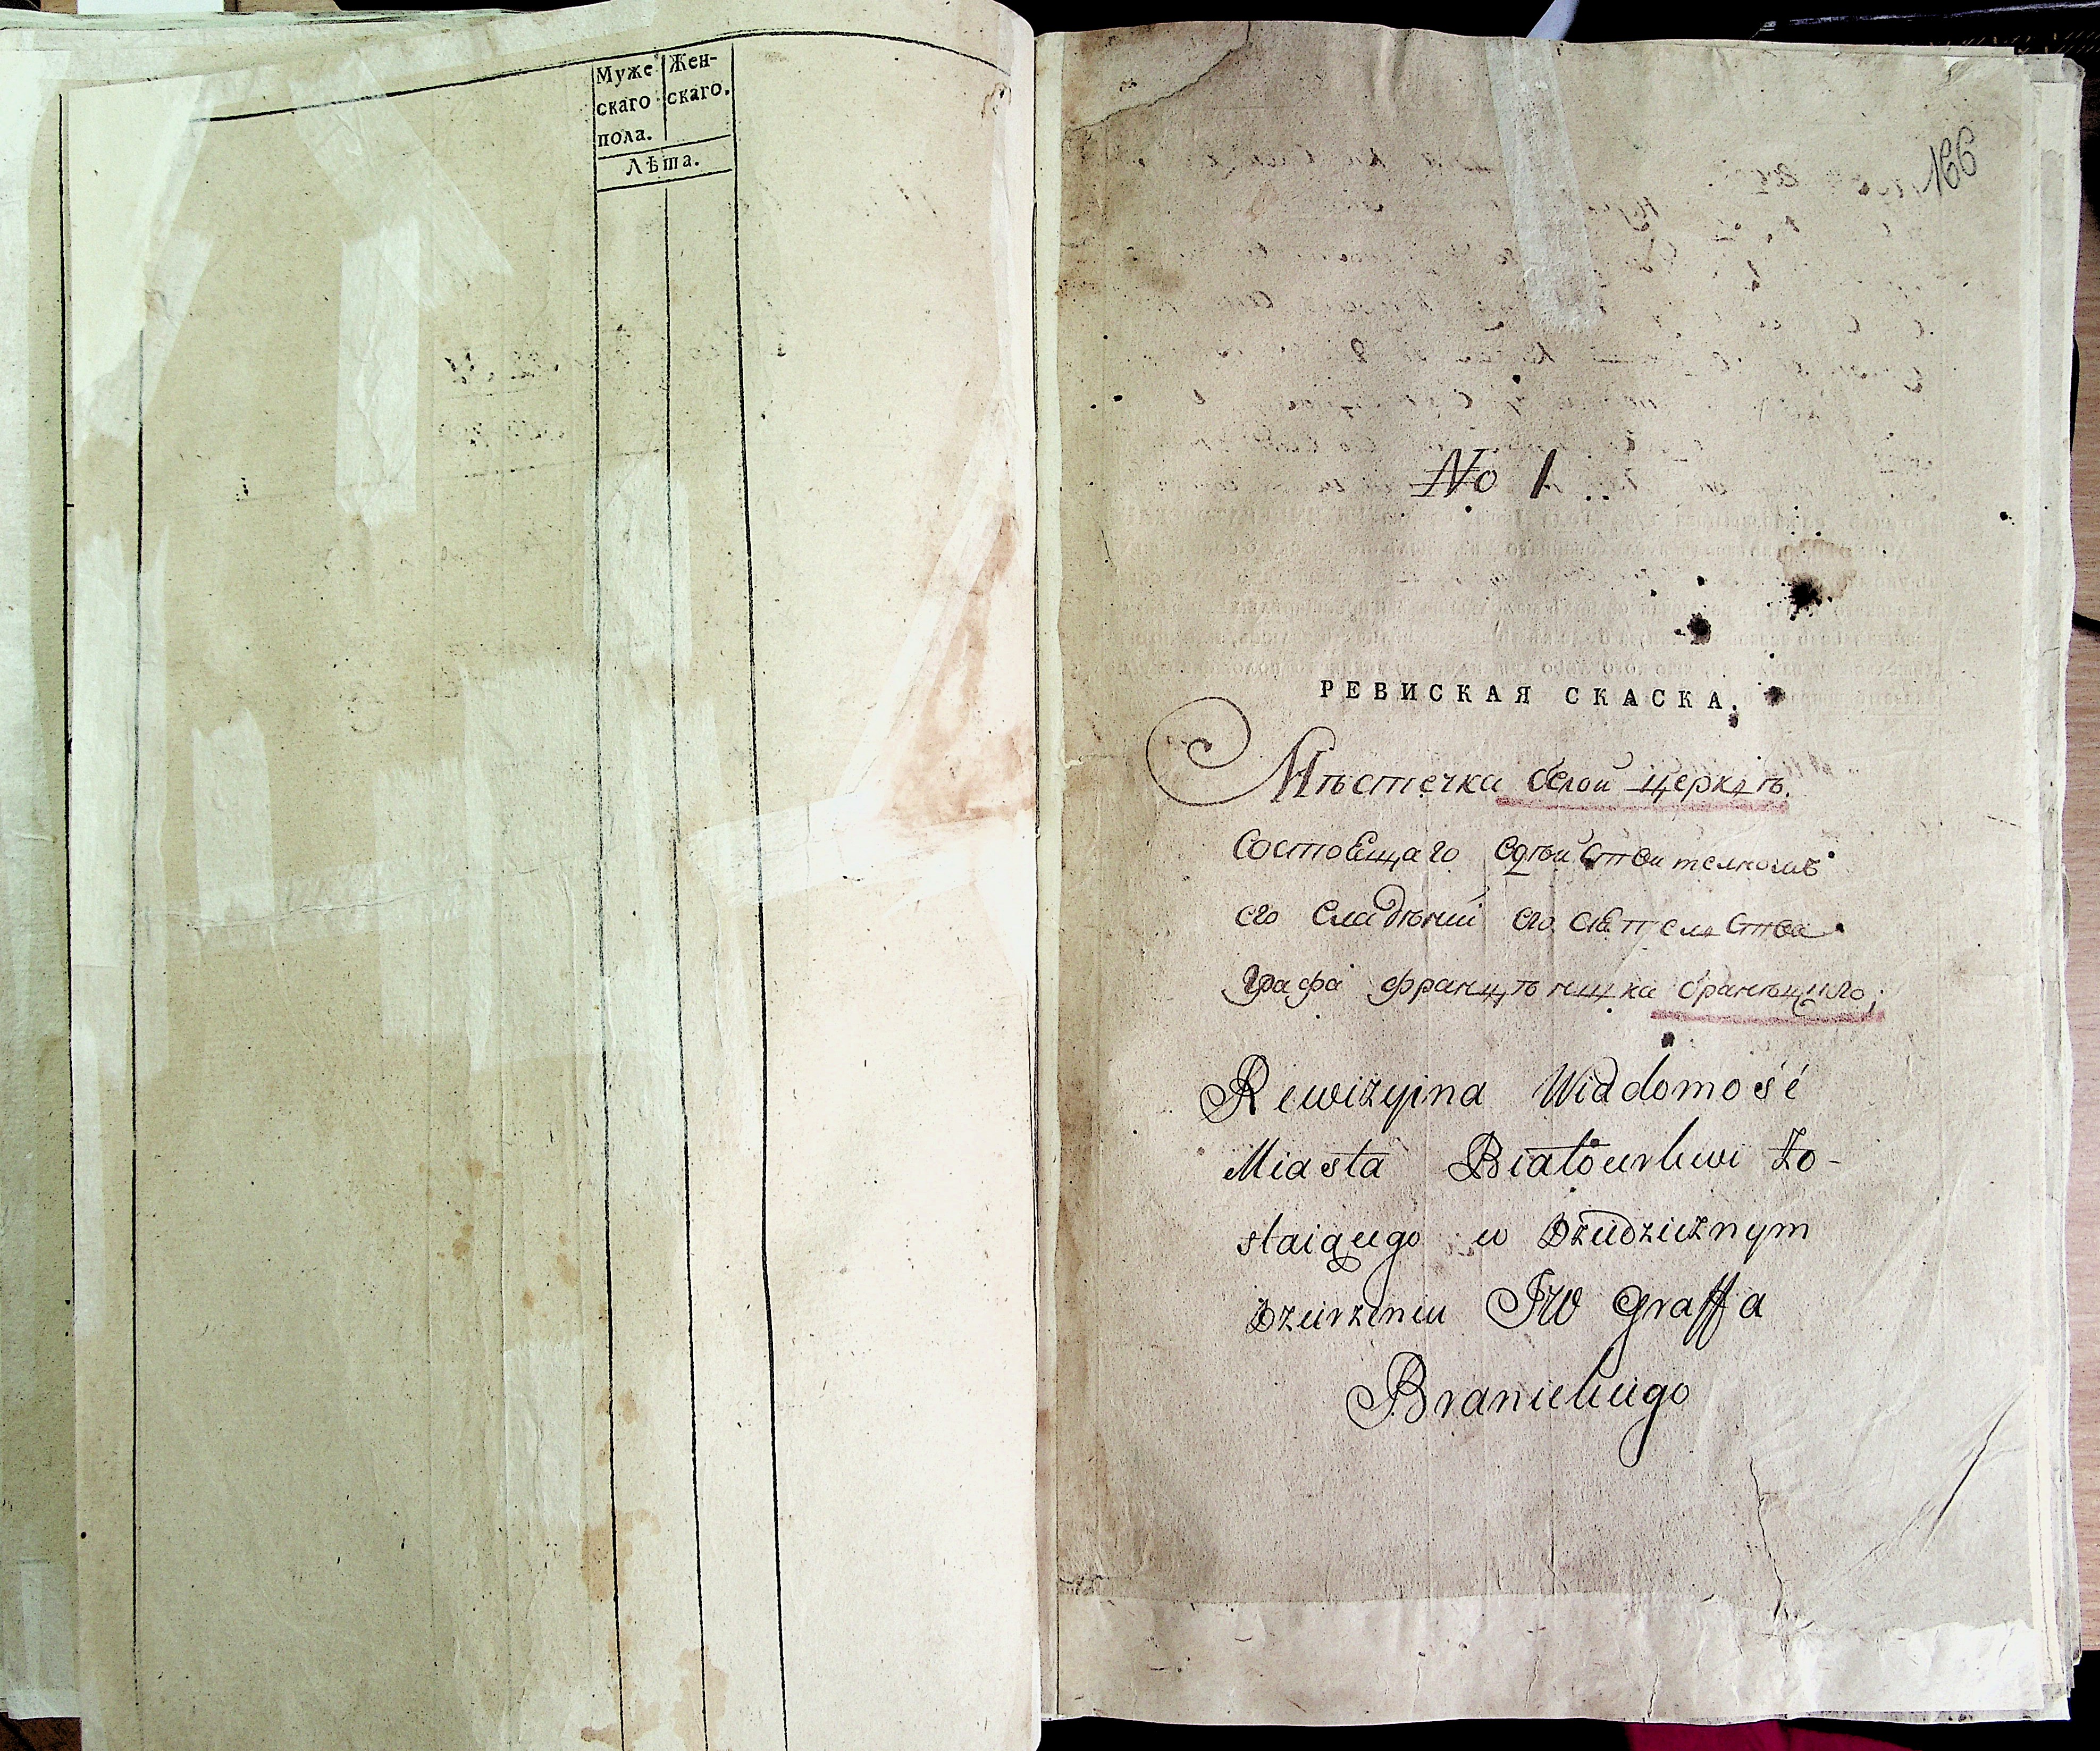 Муже Жен-
скаго скаго.
пола.
Лѣта.
166
No 1
РЕВИСКАЯ СКАСКА.
Мѣстечка белой церквѣ.
состоящаго вдѣйствителномъ
его владѣнии его сиятелства
графа францѣшка бранѣцкого;
Rewizyina Wiadomość
Miasta Białocerkwi Zo-
staiącego w Dziedzicznym
Dzierżeniu JW Graffa
Branickiego